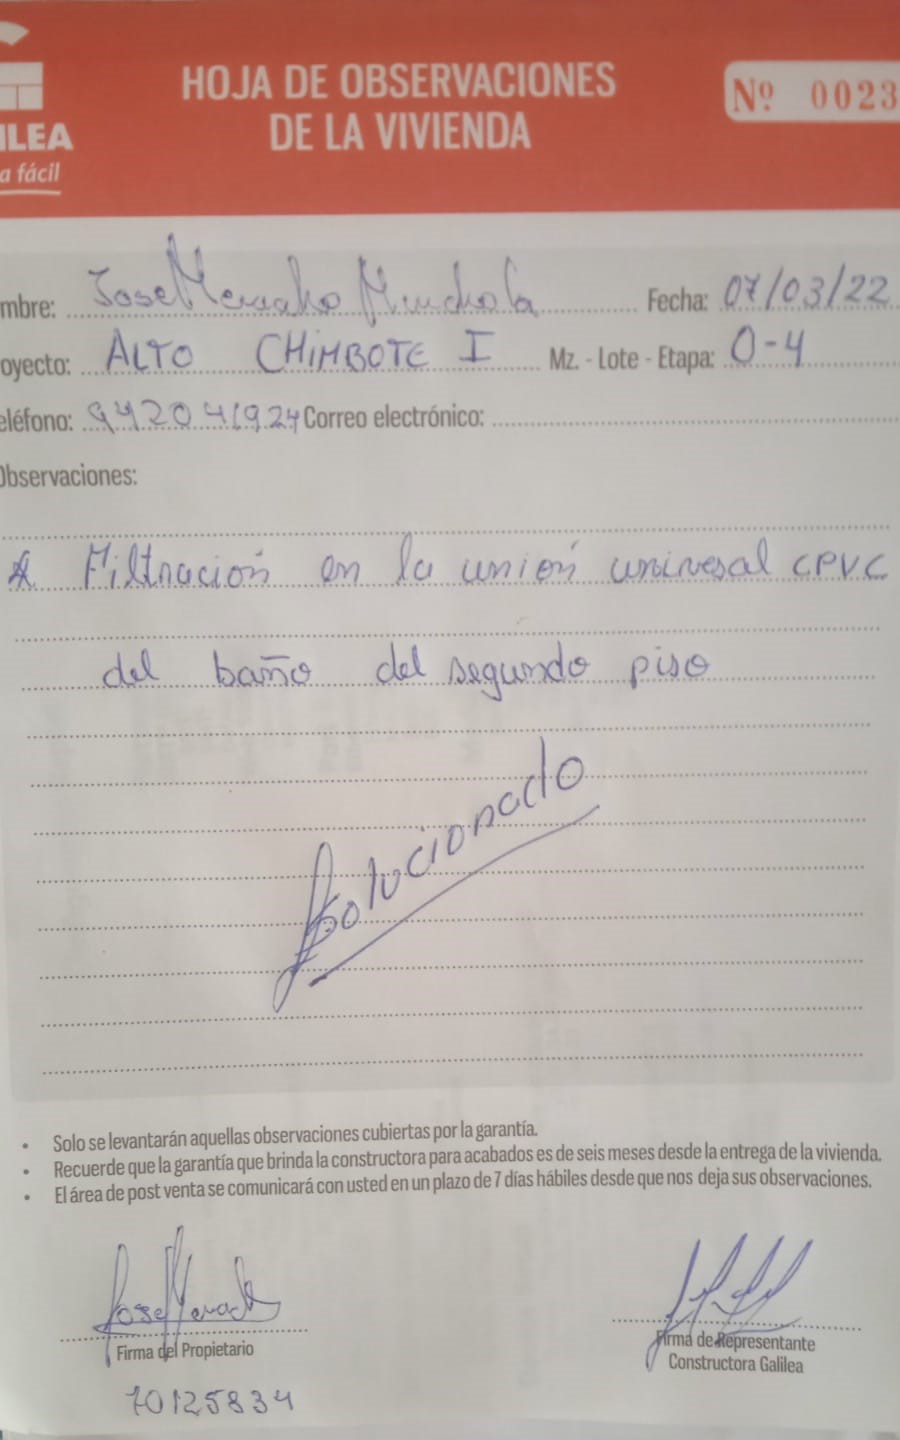 ILEA
a fácil
HOJA DE OBSERVACIONES
DE LA VIVIENDA
Nº 0023
mbre: Jose Fecha: 07/03/22
oyecto: ALTO CHIMBOTE I Mz. - Lote - Etapa: O-4
eléfono: 942041924 Correo electrónico:
Observaciones:
* Filtración en la unión univesal CPVC
del baño del segundo piso
Solucionado
• Solo se levantarán aquellas observaciones cubiertas por la garantía.
• Recuerde que la garantía que brinda la constructora para acabados es de seis meses desde la entrega de la vivienda.
• El área de post venta se comunicará con usted en un plazo de 7 días hábiles desde que nos deja sus observaciones.
Firma del Propietario
70125834
Firma de Representante
Constructora Galilea